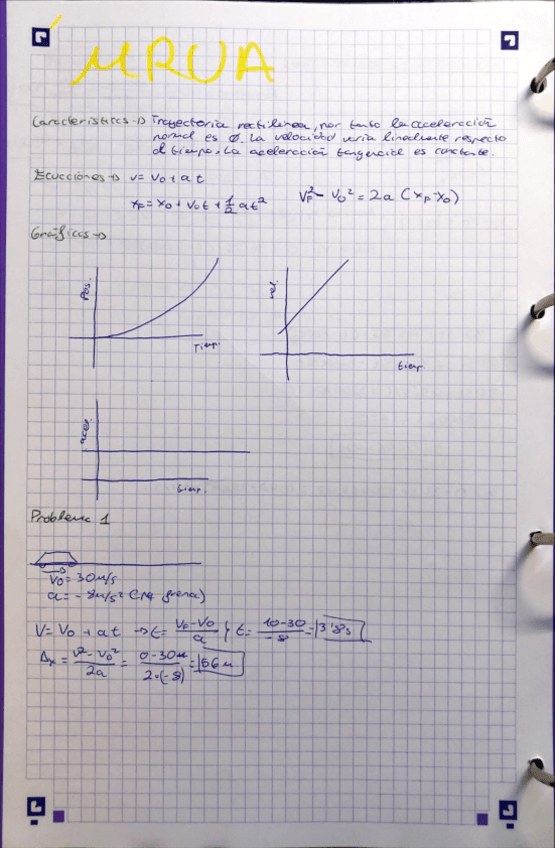 MRUA
Características → Trayectoria rectilínea, por tanto la aceleración
normal es 0. La velocidad varía linealmente respecto
al tiempo. La aceleración tangencial es constante.
Ecuaciones → v = v0 + at
xF = x0 + v0t + 1/2 at²
VF² - V0² = 2a (xF - x0)
Gráficas →
Pos.
Tiemp.
vel.
tiemp.
acel.
tiemp.
Problema 1
V0 = 30m/s
a = -8m/s² (frena)
V = V0 + at → t = (VF - V0)/a } t = (10-30)/-8 = 3'8s
Δx = (v² - v0²)/2a = (0-30²)/(2·(-8)) = 56m